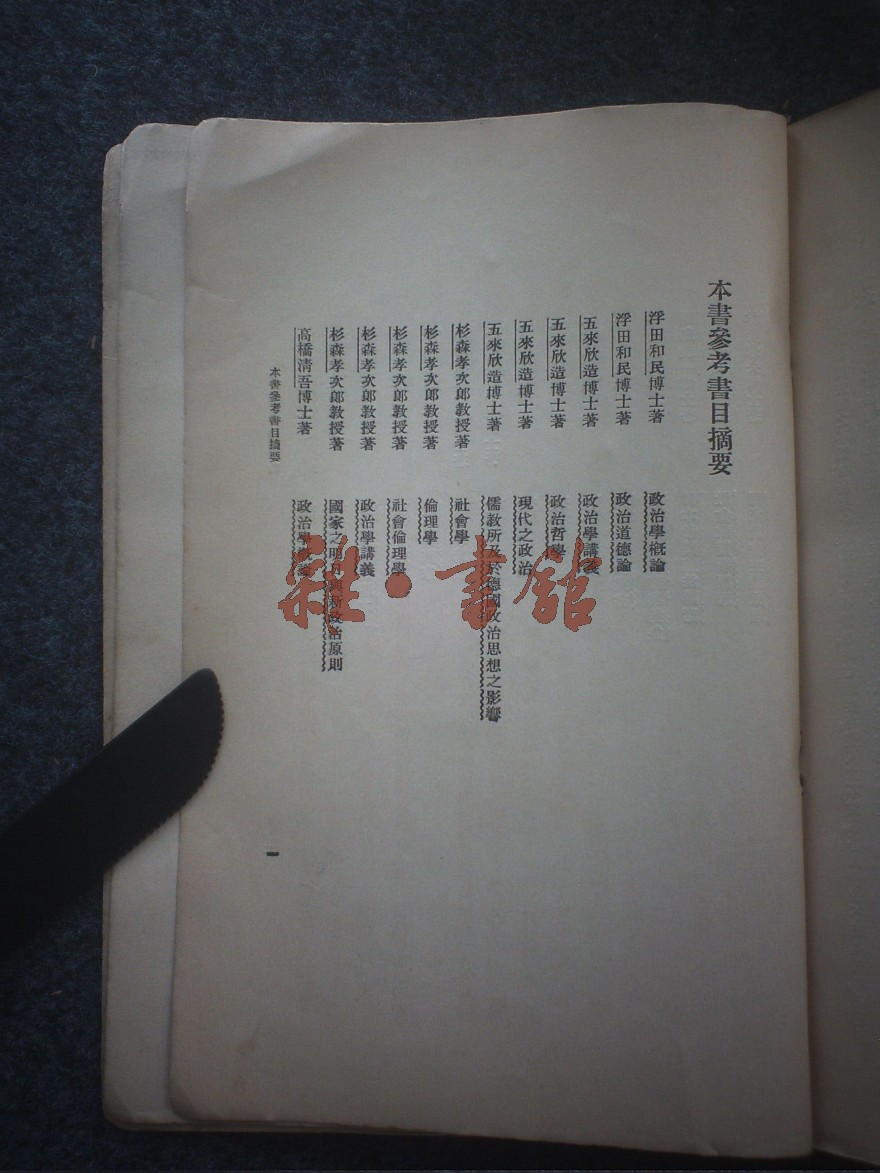 本書參考書目摘要
浮田和民博士著 政治學概論
浮田和民博士著 政治道德論
五來欣造博士著 政治學講義
五來欣造博士著 政治哲學
五來欣造博士著 現代之政治
五來欣造博士著 儒教所及於德國政治思想之影響
杉森孝次郎教授著 社會學
杉森孝次郎教授著 倫理學
杉森孝次郎教授著 社會倫理學
杉森孝次郎教授著 政治學講義
杉森孝次郎教授著 國家之明日與新政治原則
高橋清吾博士著 政治學概論
本書參考書目摘要
一
雜·書館